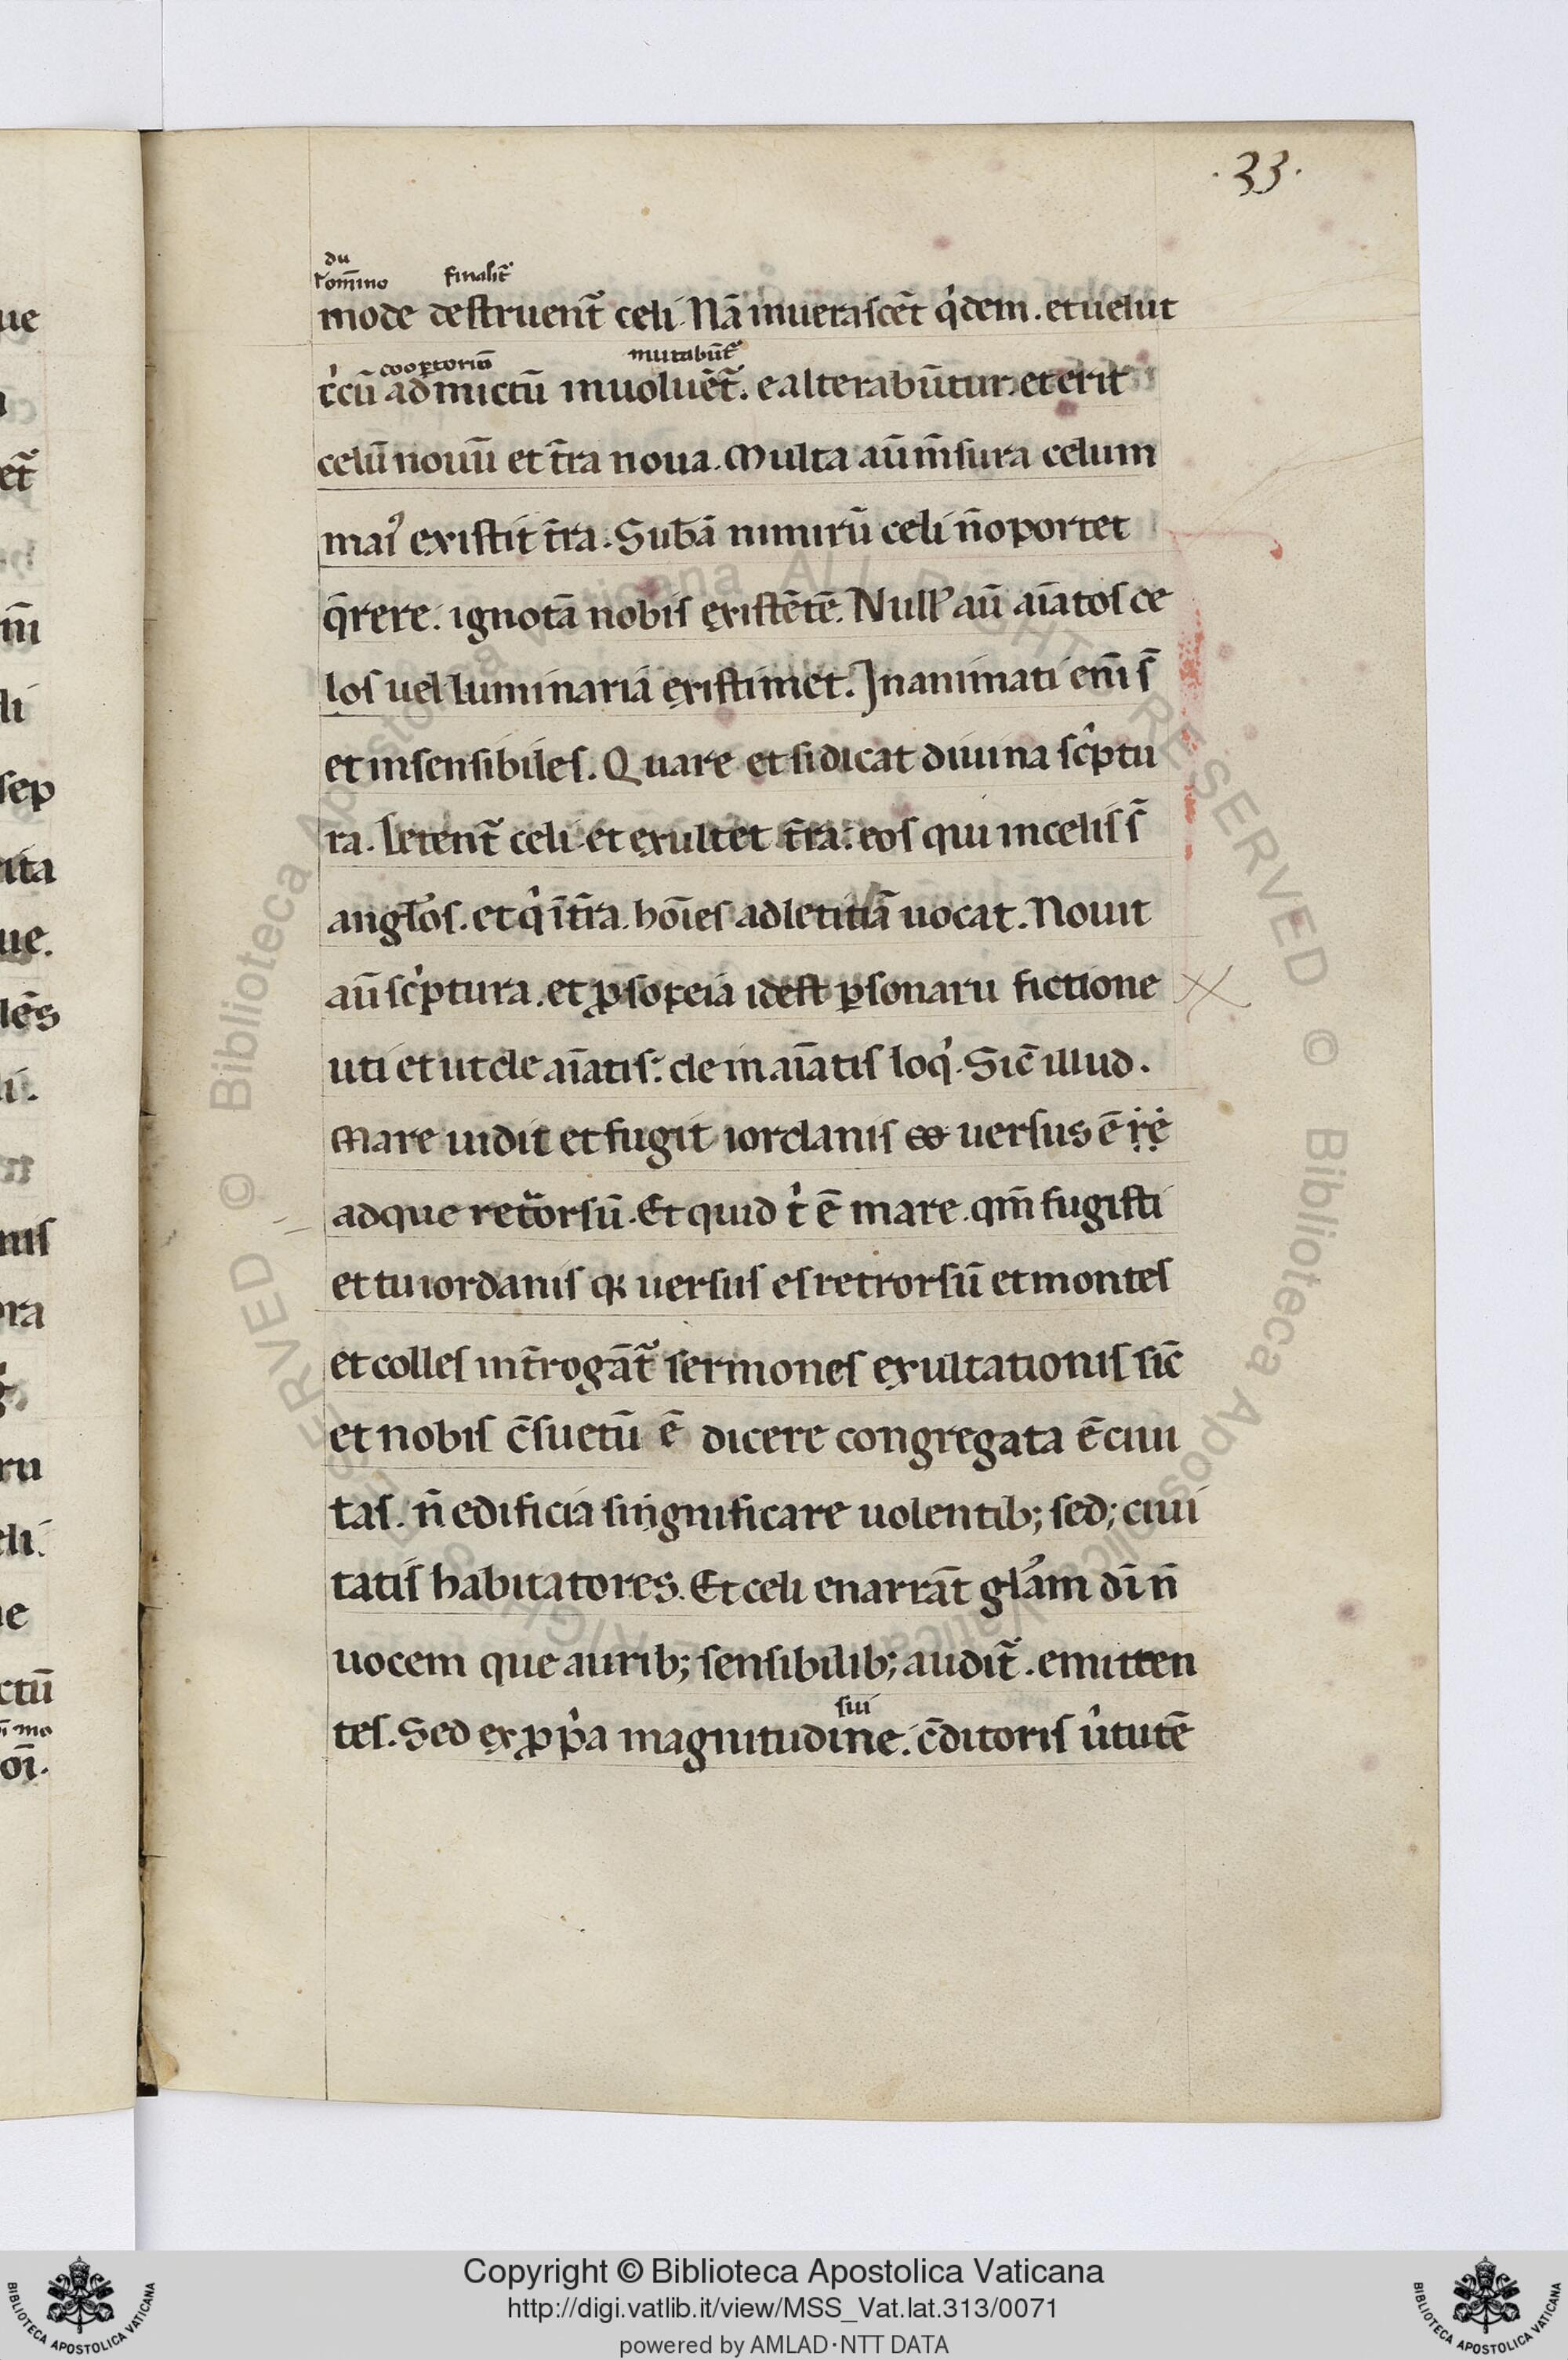 ue
etᷓ
m̄
li
sep
ita
ue.
lēs
li.
nis
ora
ru
eli.
ne
ctū
oı̄.
.33.
du
ł om̄ino finalitᷓ
mode destruentᷓ celi. Nā inuerascēt q̍dem. et uelut
coop̄toriū mutabūtᷓ
c̍cū admictū inuoluētᷓ. e alterabūtur. et erit
celū nouū et t̄ra noua. Multa aū m̄sura celum
mai᾿ existit t̄ra. Subā nimirū celi n̄ oportet
q̄rere. ignotā nobis existētē. Null᾿ aū aīatos ce
los uel luminaria existimet. Inanimati enī s̄
et insensibiles. Quare et si dicat diuina sc̍ptu
ra. letentᷓ celi et exultet t̄ra: eos qui in celis s̄
angl̓os. et q̍ ī t̄ra. hoīes ad letitiā uocat. Nouit
aū sc̍ptura. et ꝓsopeia idest ꝑsonaru fictione
uti et ut de aīatis: de inaīatis loq̍. Sic̄ illud.
Mare uidit et fugit iordanis co uersus ē rẹ
adque retᷓorsū. Et quid t̍ ē mare. qm̄ fugisti
et tu iordanis q; uersus es retrorsū et montes
et colles int̄rogātᷓ sermones exultationis sic̄
et nobis c̄suetū ē dicere congregata ē ciui
tas. n̄ edificia singnificare uolentib; sed; ciui
tatis habitatores. Et celi enarrāt gl̓am dī n̄
uocem que aurib; sensibilib; auditᷓ. emitten
sui
tes. Sed ex ꝓp̍a magnitudine. c̄ditoris u̍tutē
Copyright © Biblioteca Apostolica Vaticana
http://digi.vatlib.it/view/MSS_Vat.lat.313/0071
powered by AMLAD·NTT DATA